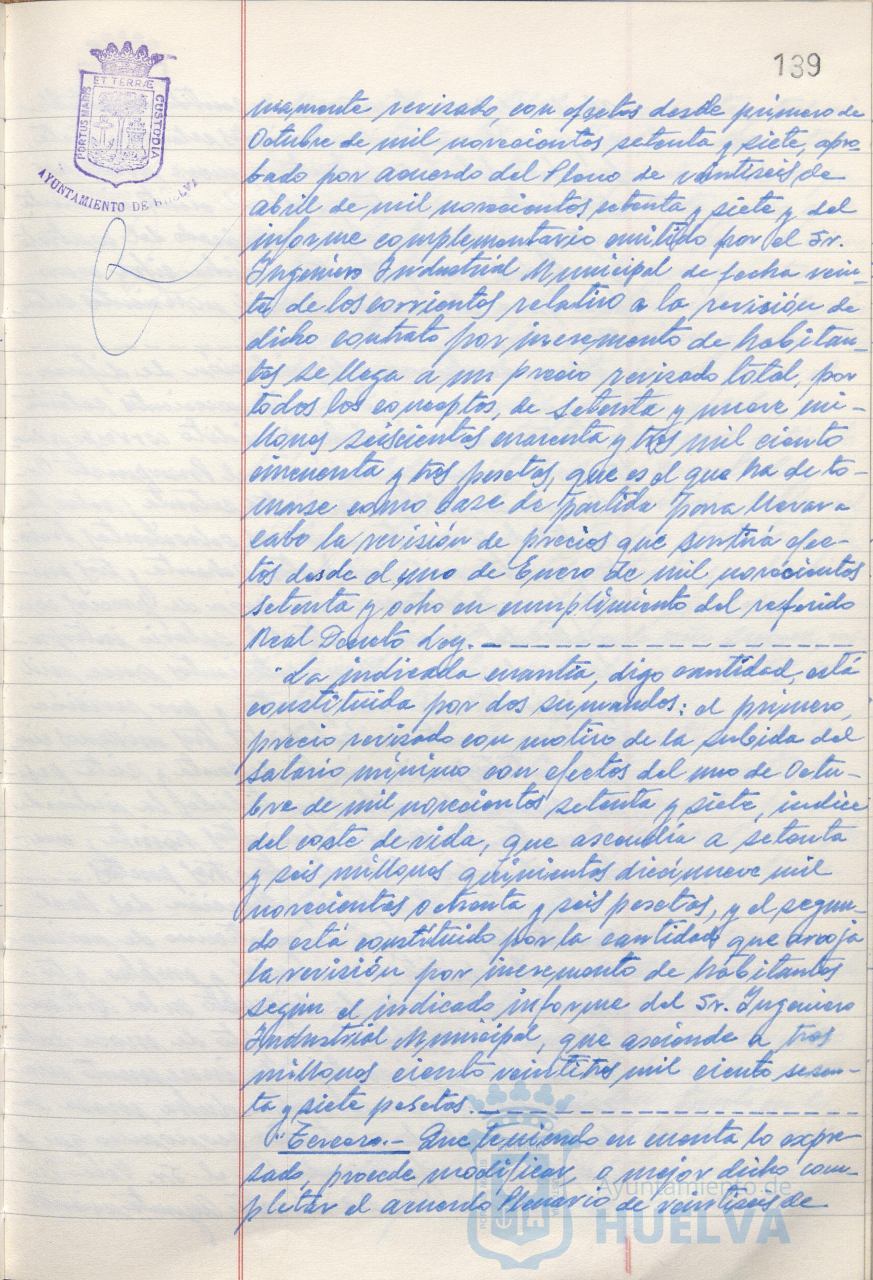 139
PORTUS MARIS ET TERRÆ CUSTODIA
AYUNTAMIENTO DE HUELVA
mamente revisado, con efectos desde primero de
Octubre de mil novecientos setenta y siete, apro-
bado por acuerdo del Pleno de veintiseis de
abril de mil novecientos setenta y siete y del
informe complementario emitido por el Sr.
Ingeniero Industrial Municipal de fecha vein-
te de los corrientes relativo a la revisión de
dicho contrato por incremento de habitan-
tes se llega a un precio revisado total, por
todos los conceptos, de setenta y nueve mi-
llones seiscientos cuarenta y tres mil ciento
cincuenta y tres pesetas, que es el que ha de to-
marse como base de partida para llevar a
cabo la revisión de precios que surtirá efec-
tos desde el uno de Enero de mil novecientos
setenta y ocho en cumplimiento del referido
Real Decreto Ley. - - - - - - - - - - - -
"La indicada cuantía, digo cantidad, está
constituida por dos sumandos: el primero,
precio revisado con motivo de la subida del
salario mínimo con efectos del uno de Octu-
bre de mil novecientos setenta y siete, indice
del coste de vida, que ascendía a setenta
y seis millones quinientos diecinueve mil
novecientos ochenta y seis pesetas, y el segun-
do está constituido por la cantidad que arroja
la revisión por incremento de habitantes
según el indicado informe del Sr. Ingeniero
Industrial Municipal, que asciende a tres
millones ciento veintitres mil ciento sesen-
ta y siete pesetas. - - - - - - - - - - - -
"Tercero.- Que teniendo en cuenta lo expre-
sado, procede modificar, o mejor dicho com-
pletar el acuerdo Plenario de veintiseis de
Ayuntamiento de
HUELVA